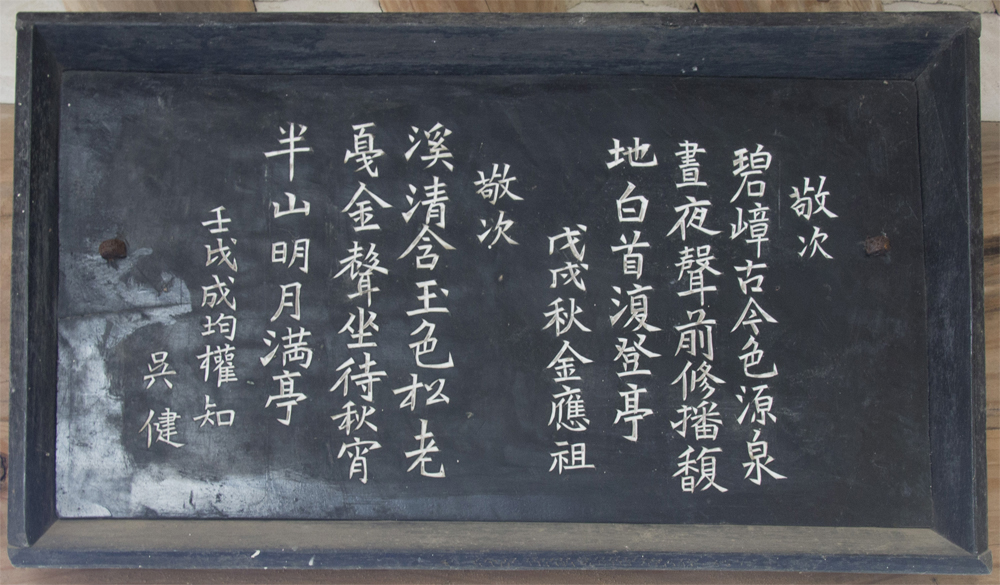 敬次
碧嶂古今色源泉
晝夜聲前修播馥
地白首復登亭
戊戌秋金應祖
敬次
溪清含玉色松老
戛金聲坐待秋宵
半山明月満亭
壬戌成均權知
吳健